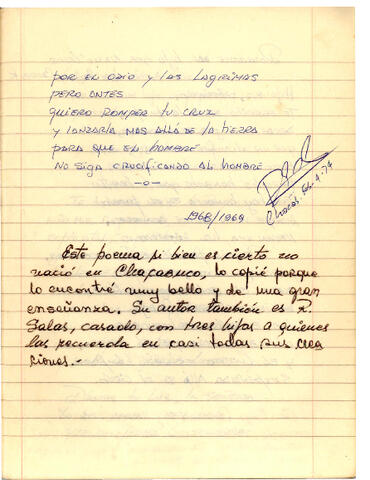 POR EN ODIO Y LAS LAGRIMAS
PERO ANTES
QUIERO ROMPER TU CRUZ
Y LANZARLA MAS ALLÁ DE LA TIERRA
PARA QUE EL HOMBRE
NO SIGA CRUCIFICANDO AL HOMBRE
-o-
1968/1969
Chacab. Feb. 4-74
Este poema si bien es cierto no
nació en Chacabuco, lo copié porque
lo encontré muy bello y de una gran
enseñanza. Su autor también es R.
Salas, casado, con tres hijas a quienes
las recuerda en casi todas sus crea
ciones.-